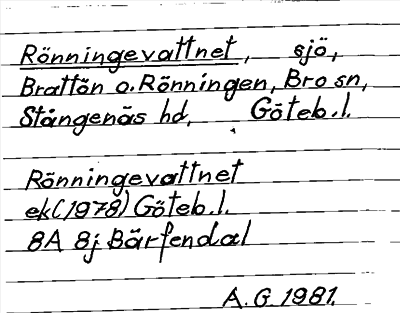 Rönningevattnet, sjö,
Brattön o. Rönningen, Bro sn,
Stångenäs hd, Göteb. l.
Rönningevattnet
ek (1978) Göteb. l.
8A 8j Bärfendal
A. G. 1981.